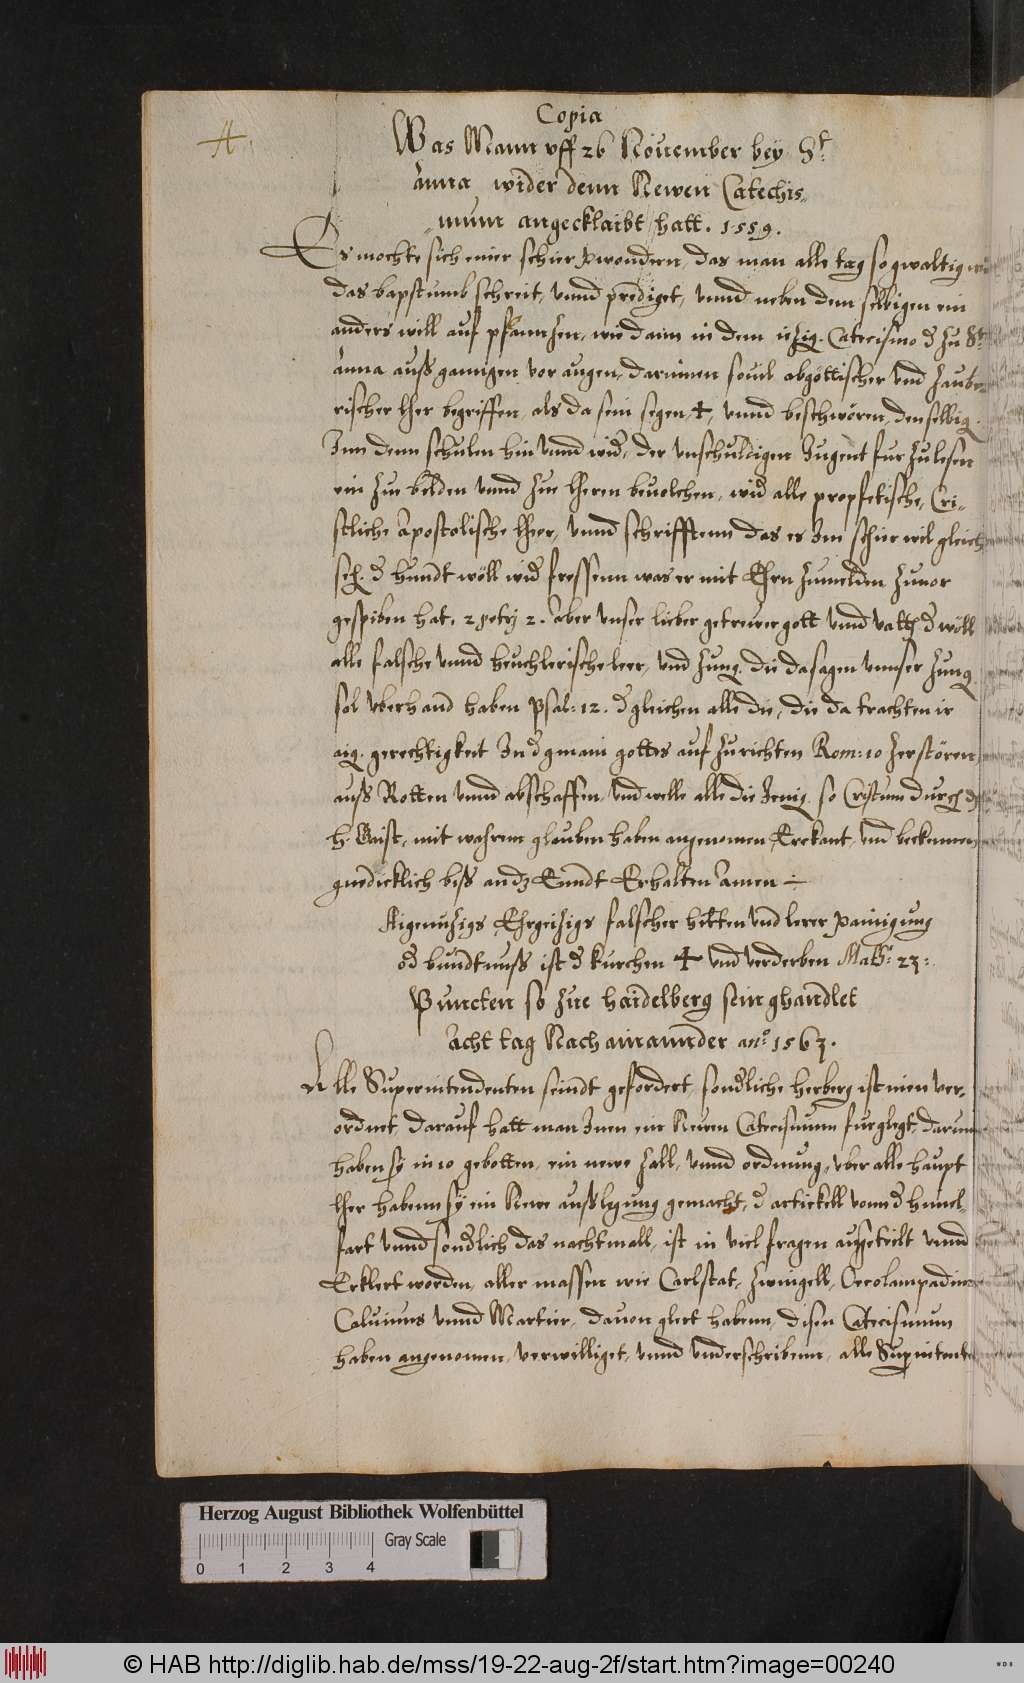 A
Copia
Was Mann vff 26 Nouember bey St
Anna wider denn Newen Catechis„
„mum angecklaibt hatt. 1559.
Es mochte sich einer schier wondern, das man alle tag so gwaltig
das bapstumb schreit, vnnd prediget, vnnd neben dem selbigen ein
anders will auf pflantzen, wie dann in dem Catecismo d zu St
Anna auß gangen vor augen, darinnen souil abgöttischer vnd zaube„
rischer lher begriffen, als da sein segen, ✝, vnnd beschwören, denselbig.
Inn denn schulen hin vnnd wid, der vnschuldigen Jugent fur zu lesen
ein zue bilden vnnd zue lheren beuolchen, wid alle propfetische, Cri„
stliche Apostolische lheer, vnnd schrifftenn das es Im schier wil gleich
seh. d hundt wöll wid fressenn was er mit Ehrn zumelden zuuor
gespiben hat. 2 petrj 2. Aber vnser lieber getrewer gott vnnd vatt d wöll
alle falsche vnnd heuchlerische leer, vnd zung. die da sagen vnnser zung
sol vberhand haben Psal: 12. d gleichen alle die, die da trachten ir
aig. gerechtigkeit In d gmain gottes auf zu richten Rom: 10 zerstören
auß Rotten vnnd abschaffen, vnd welle alle die Jenig. so Cristum durch d
h. Gaist, mit wahrem glauben haben angenomen Erekant, vnd beckennen
gnedicklich biß an dz Enndt Erhalten Amen ÷
Aigenuzigs Ehrgeizigs falscher hirtten vnd lerer painigung
od bundtnuß ist d kürchen ✝ vnd verderben Math: 23:
Puncten so zue haidelberg sein ghandlet
Acht tag Nach ainannder ano 1563.
Alle Superintendenten seindt gefordert, sondliche herberg ist inen ver„
ordnet, darauf hatt man Inen ein Newen Catecismum furglegt, darinn
haben sy in 10 gebotten, ein newe zall, vnnd ordnung, vber alle haupt
lher habenn sy ein Newe außlegung gemacht, d artickell vonn d himel„
fart vnnd sondlich das nachtmall, ist in viel fragen außgeteilt vnnd
Erklert worden, aller massen wie Carlstat, zwingell, Oecolampadius
Caluinus vnnd Martir, dauon glert habenn, disen Catecismum
haben angenomen, verwilliget, vnnd vnderschribenn, alle Supintent
Herzog August Bibliothek Wolfenbüttel
Gray Scale
0 1 2 3 4
© HAB http://diglib.hab.de/mss/19-22-aug-2f/start.htm?image=00240